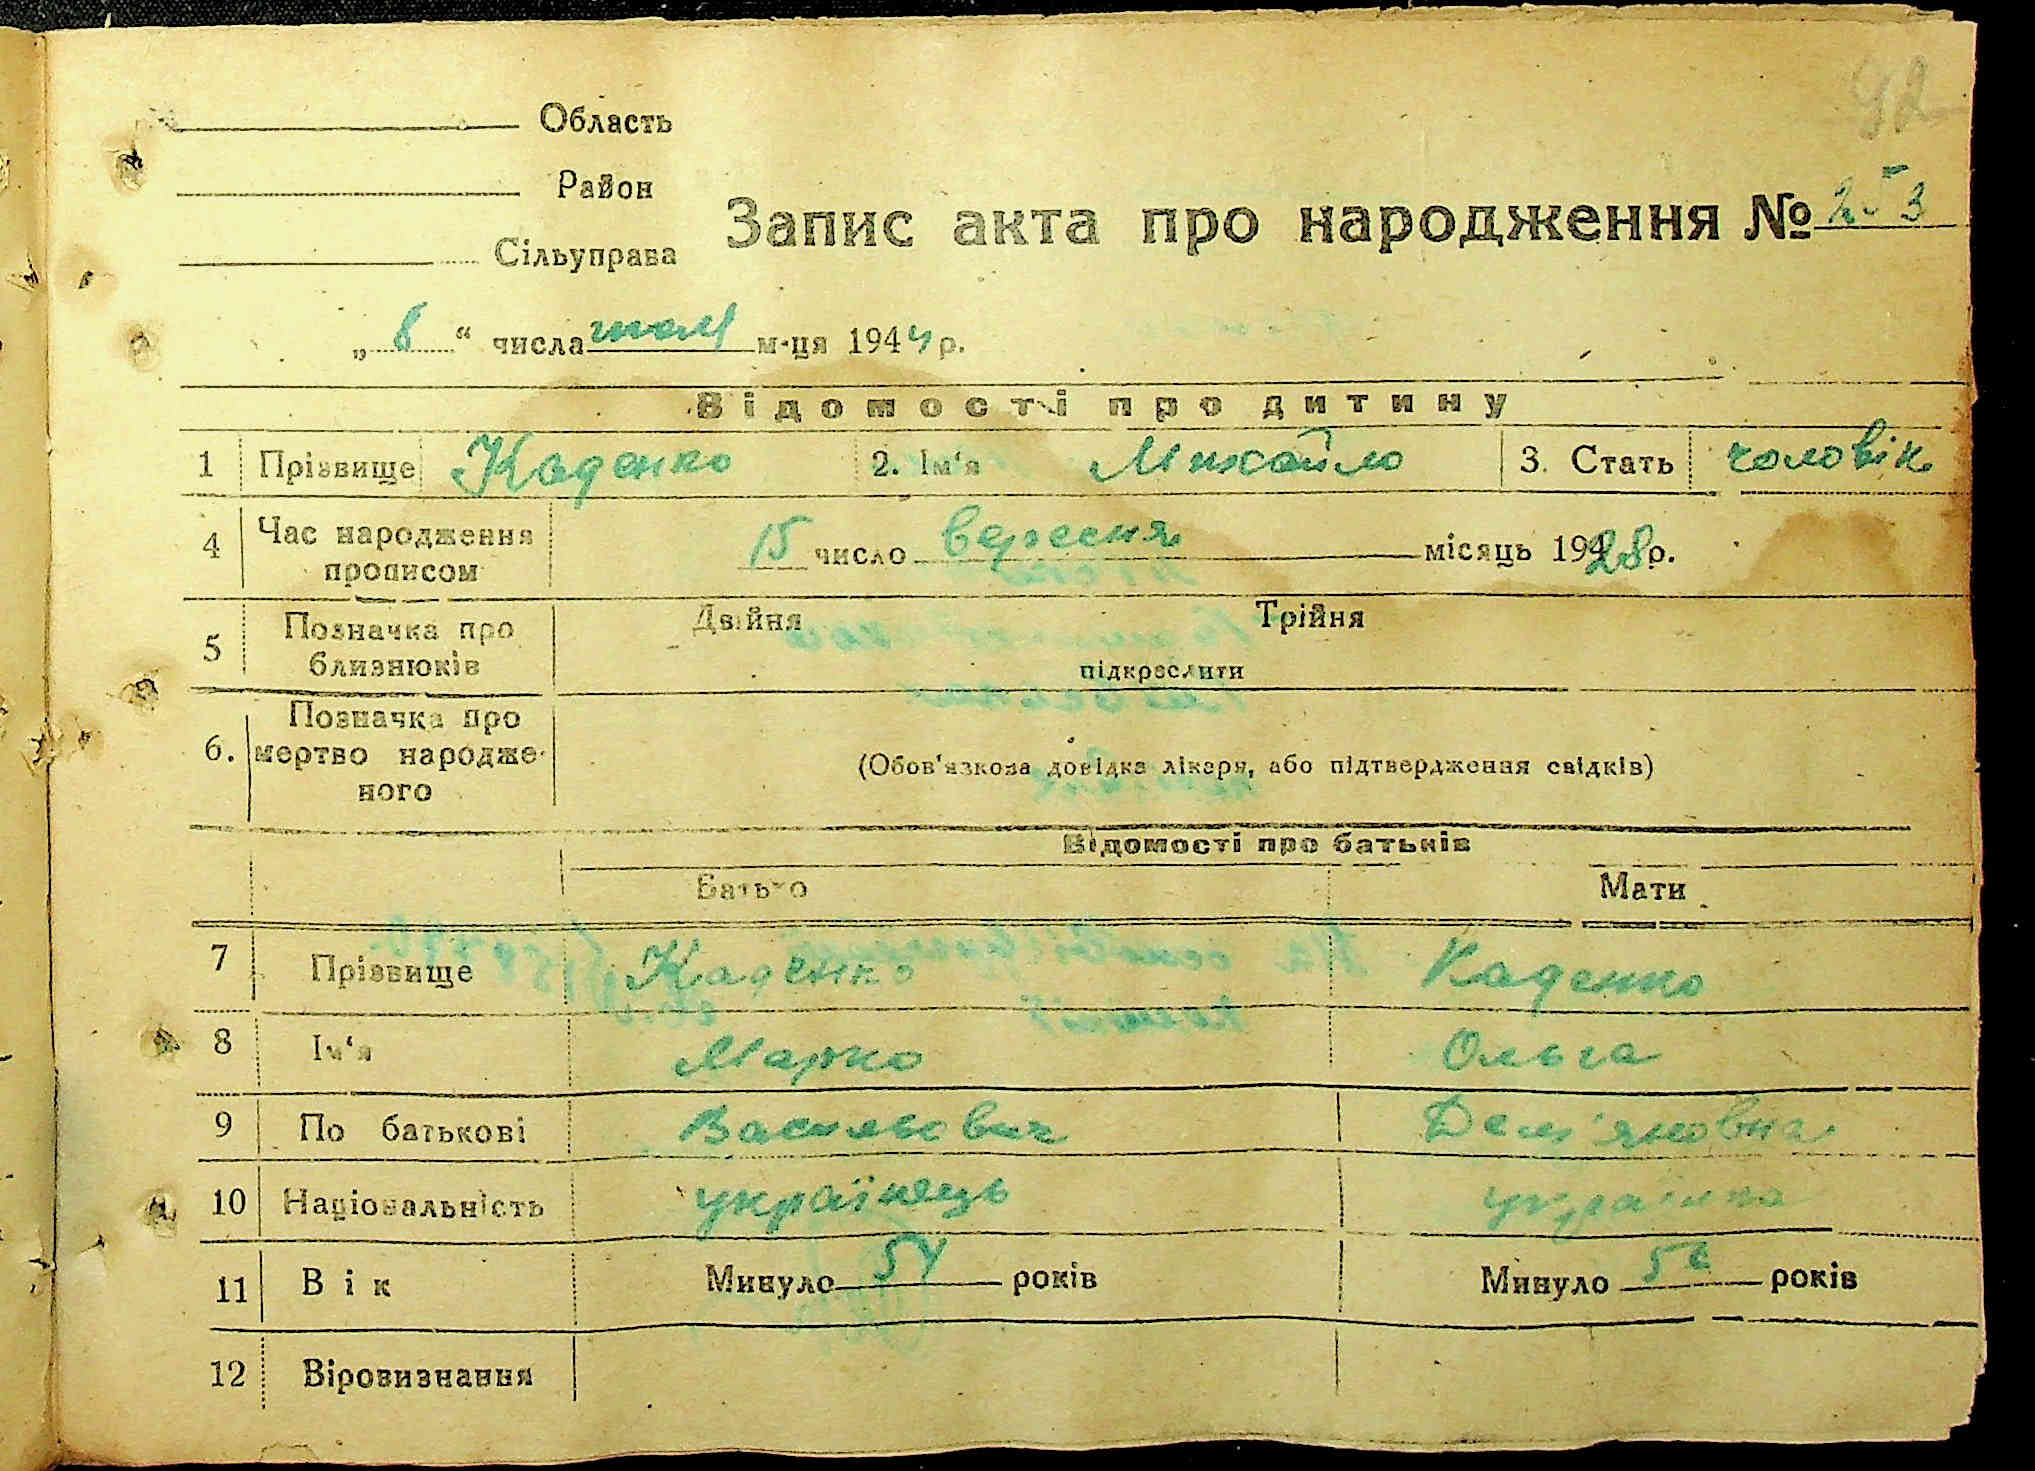 92
Область
Район
Сільуправа
Запис акта про народження № 253
„ 8 “ числа м-ця 1944 р.
Відомості про дитину
1 Прізвище Каденко 2. Ім‘я Михайло 3. Стать чоловік
4 Час народження прописом 15 число вересня місяць 1928 р.
5 Позначка про близнюків Двійня Трійня
підкреслити
6. Позначка про мертво народже-ного (Обов'язкова довідка лікаря, або підтвердження свідків)
Відомості про батьків
Батько Мати
7 Прізвище Каденко Каденко
8 Ім‘я Марко Ольга
9 По батькові Васильович Дем'яновна
10 Національність українець українка
11 Вік Минуло 54 років Минуло років
12 Віровизнання